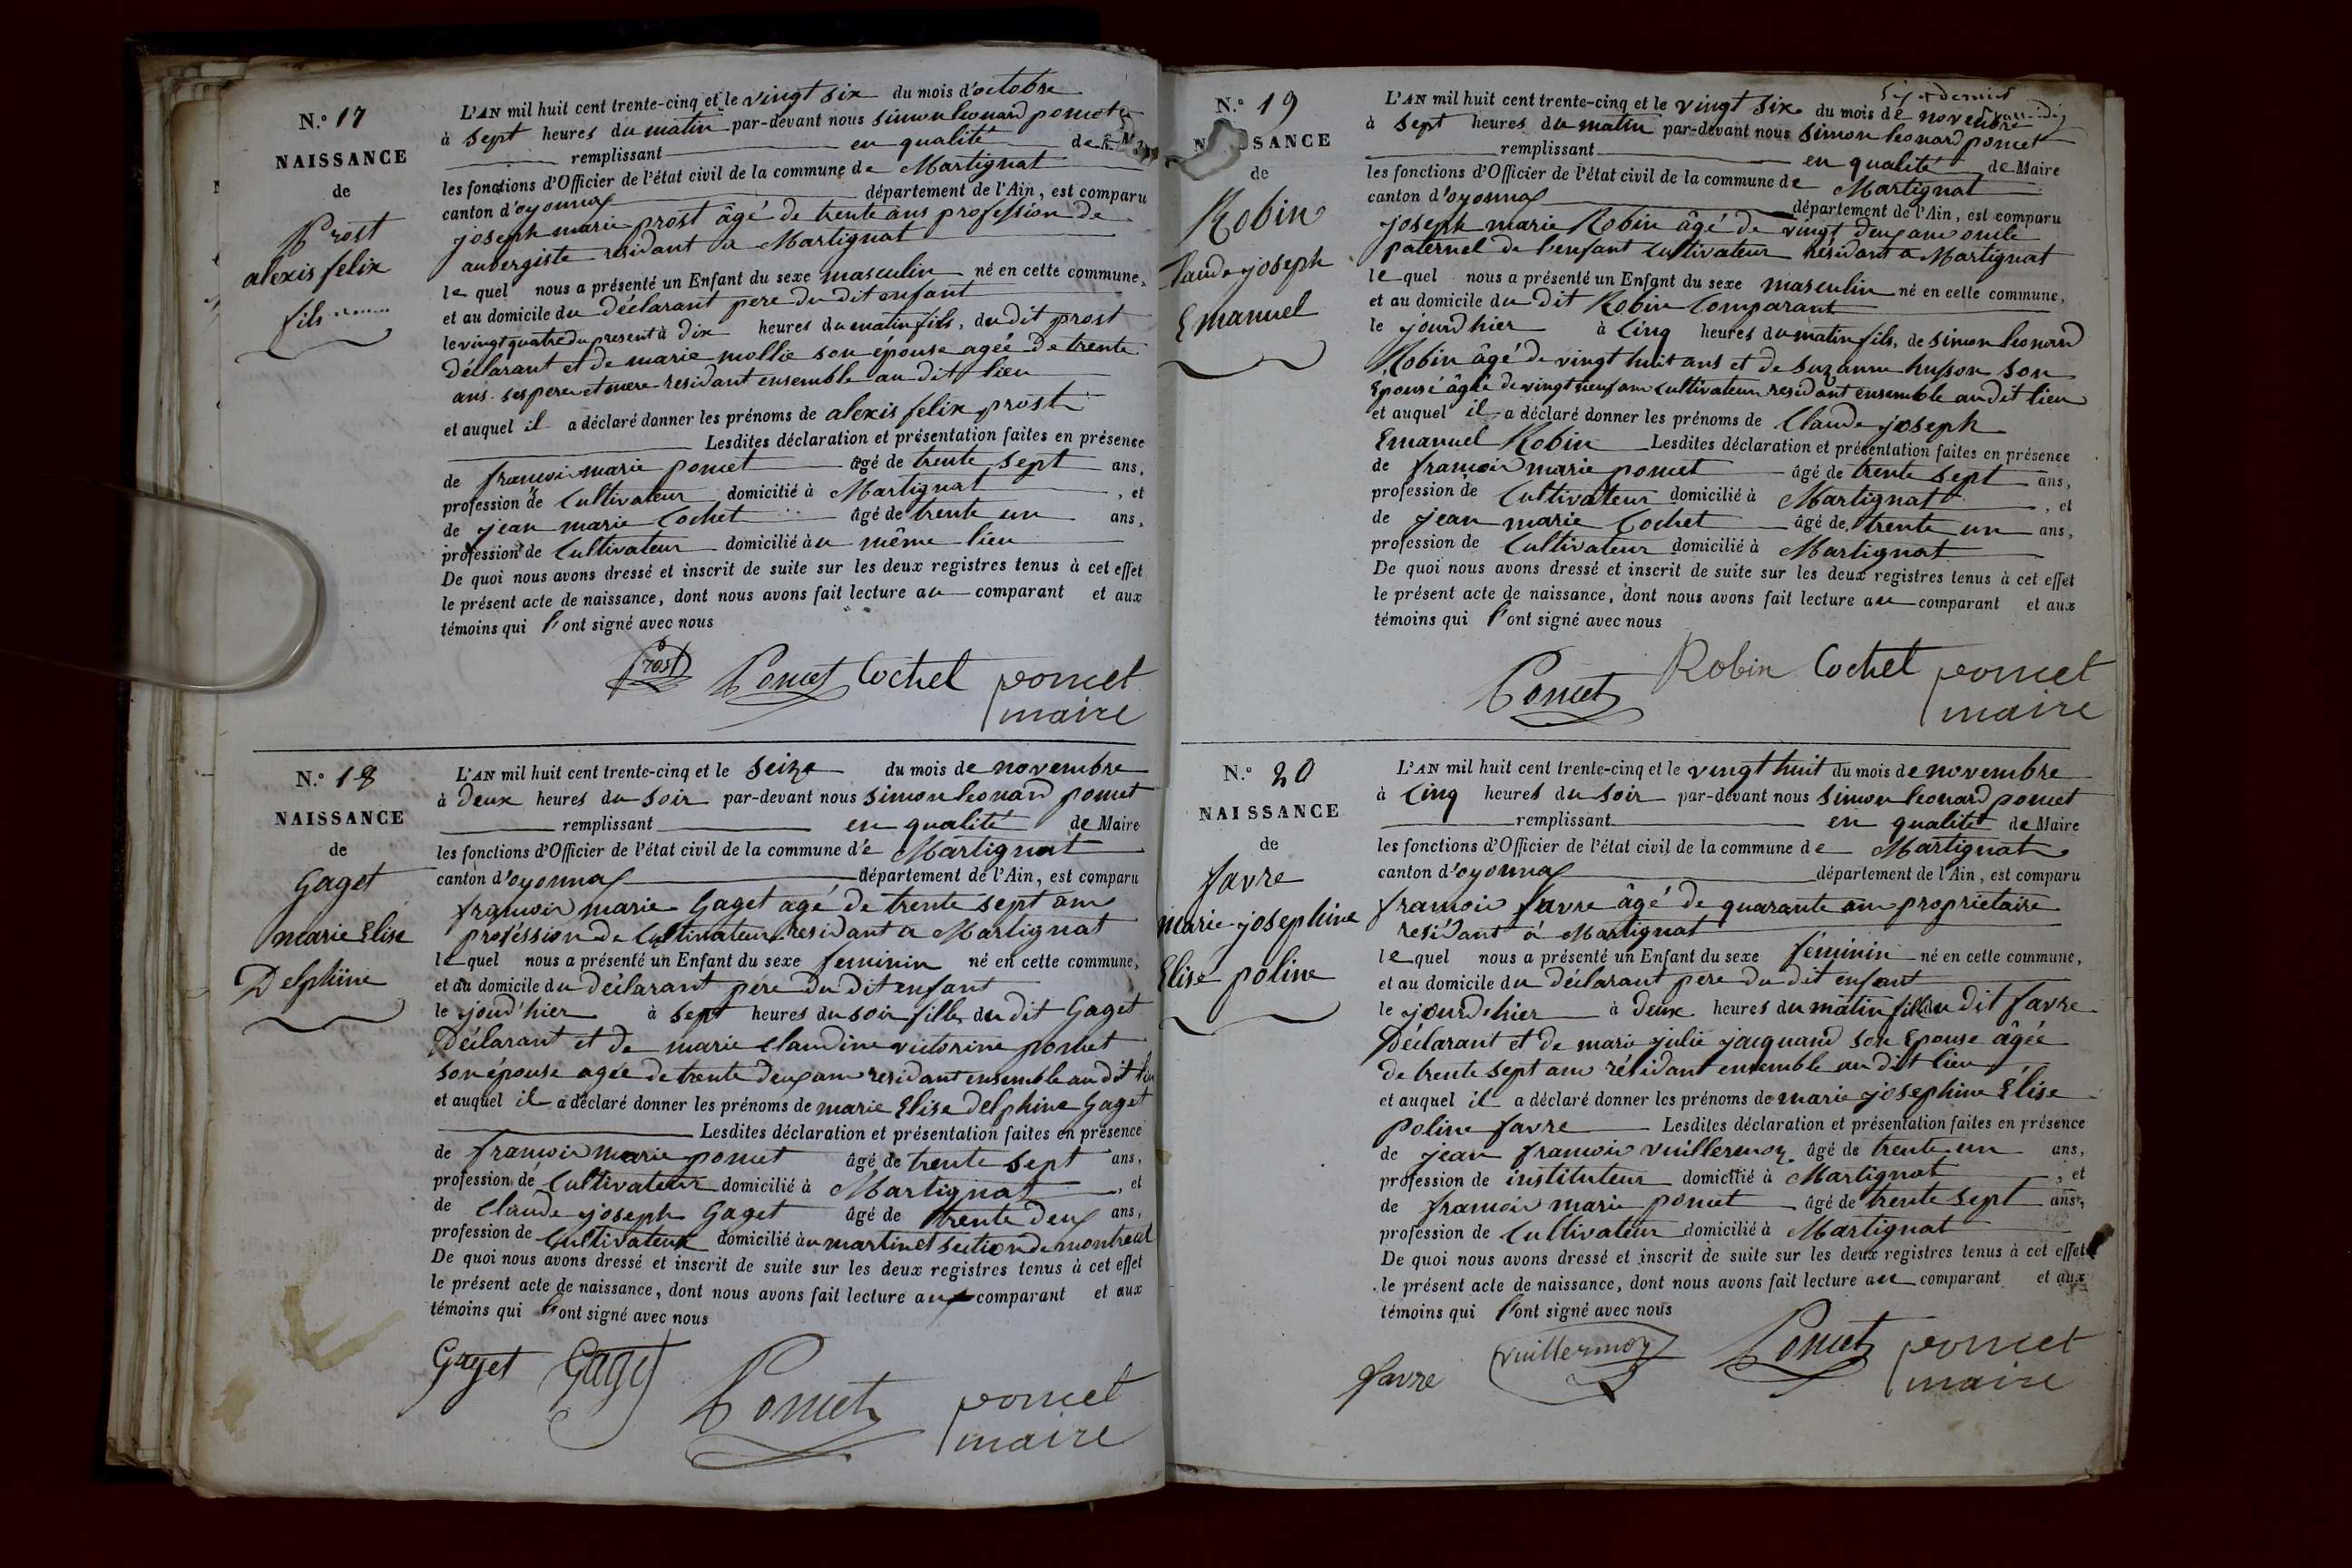 N.º 17
NAISSANCE
de
Prost
alexis felix
fils
L'AN mil huit cent trente-cinq et le vingt six du mois d'octobre
à sept heures du matin par-devant nous simon leonard poncet
remplissant en qualité de
les fonctions d'Officier de l'état civil de la commune de Martignat
canton d'oyonnax département de l'Ain, est comparu
joseph marie prost âgé de trente ans profession de
aubergiste residant a Martignat
le quel nous a présenté un Enfant du sexe masculin né en cette commune,
et au domicile du déclarant pere du dit enfant
le vingt quatre du present à dix heures du matin fils, du dit prost
déclarant et de marie mollie son épouse agée de trente
ans ses pere et mere residant ensemble au dit lieu
et auquel il a déclaré donner les prénoms de alexis felix prost
Lesdites déclaration et présentation faites en présence
de francois marie poncet âgé de trente sept ans,
profession de Cultivateur domicilié à Martignat, et
de jean marie Cochet âgé de trente un ans,
profession de Cultivateur domicilié au même lieu
De quoi nous avons dressé et inscrit de suite sur les deux registres tenus à cet effet
le présent acte de naissance, dont nous avons fait lecture au comparant et aux
témoins qui l'ont signé avec nous
Prost Poncet Cochet poncet
maire
N.º 18
NAISSANCE
de
Gaget
marie Elise
Delphine
L'AN mil huit cent trente-cinq et le seize du mois de novembre
à deux heures du soir par-devant nous simon leonard poncet
remplissant en qualité de Maire
les fonctions d'Officier de l'état civil de la commune de Martignat
canton d'oyonnax département de l'Ain, est comparu
francois marie Gaget agé de trente sept ans
proféssion de Cultivateur residant a Martignat
le quel nous a présenté un Enfant du sexe feminin né en cette commune,
et au domicile du déclarant pére du dit enfant
le jourd'hier à sept heures du soir fille, du dit Gaget
Déclarant et de marie Claudine victorine poncet
son épouse agée de trente deux ans residant ensemble au dit lieu
et auquel il a déclaré donner les prénoms de marie Elise delphine Gaget
Lesdites déclaration et présentation faites en présence
de francois marie poncet âgé de trente sept ans,
profession de Cultivateur domicilié à Martignat, et
de Claude joseph Gaget âgé de trente deux ans,
profession de Cultivateur domicilié au martinet section de montreal
De quoi nous avons dressé et inscrit de suite sur les deux registres tenus à cet effet
le présent acte de naissance, dont nous avons fait lecture aux comparant et aux
témoins qui l'ont signé avec nous
Gaget Gaget Poncet poncet
maire
N.º 19
NAISSANCE
de
Robin
Claude joseph
Emanuel
L'AN mil huit cent trente-cinq et le vingt six du mois de novembre
à sept heures du matin par-devant nous simon leonard poncet
remplissant en qualité de Maire
les fonctions d'Officier de l'état civil de la commune de Martignat
canton d'oyonnax département de l'Ain, est comparu
joseph marie Robin âgé de vingt deux ans oncle
paternel de l'enfant Cultivateur résidant a Martignat
le quel nous a présenté un Enfant du sexe masculin né en cette commune,
et au domicile du dit Robin Comparant
le jourd'hier à Cinq heures du matin fils, de simon leonard
Robin âgé de vingt huit ans et de suzanne huson son
Epouse âgée de vingt neuf ans Cultivateur residant ensemble au dit lieu
et auquel il a déclaré donner les prénoms de Claude joseph
Emanuel Robin Lesdites déclaration et présentation faites en présence
de francois marie poncet âgé de trente sept ans,
profession de Cultivateur domicilié à Martignat, et
de jean marie Cochet âgé de trente un ans,
profession de Cultivateur domicilié à Martignat
De quoi nous avons dressé et inscrit de suite sur les deux registres tenus à cet effet
le présent acte de naissance, dont nous avons fait lecture au comparant et aux
témoins qui l'ont signé avec nous
Poncet Robin Cochet poncet
maire
N.º 20
NAISSANCE
de
favre
marie josephine
Elise poline
L'AN mil huit cent trente-cinq et le vingt huit du mois de novembre
à Cinq heures du soir par-devant nous simon leonard poncet
remplissant en qualité de Maire
les fonctions d'Officier de l'état civil de la commune de Martignat
canton d'oyonnax département de l'Ain, est comparu
francois favre âgé de quarante ans proprietaire
residant à Martignat
le quel nous a présenté un Enfant du sexe féminin né en cette commune,
et au domicile du déclarant pere du dit enfant
le jourd'hier à deux heures du matin fille du dit favre
Déclarant et de marie julie jacquand son Epouse âgée
de trente sept ans résidant ensemble au dit lieu
et auquel il a déclaré donner les prénoms de marie josephine Elise
poline favre Lesdites déclaration et présentation faites en présence
de jean francois vuillermoz âgé de trente un ans,
profession de instituteur domicilié à Martignat, et
de francois marie poncet âgé de trente sept ans,
profession de Cultivateur domicilié à Martignat
De quoi nous avons dressé et inscrit de suite sur les deux registres tenus à cet effet
le présent acte de naissance, dont nous avons fait lecture au comparant et aux
témoins qui l'ont signé avec nous
favre vuillermoz Poncet poncet
maire